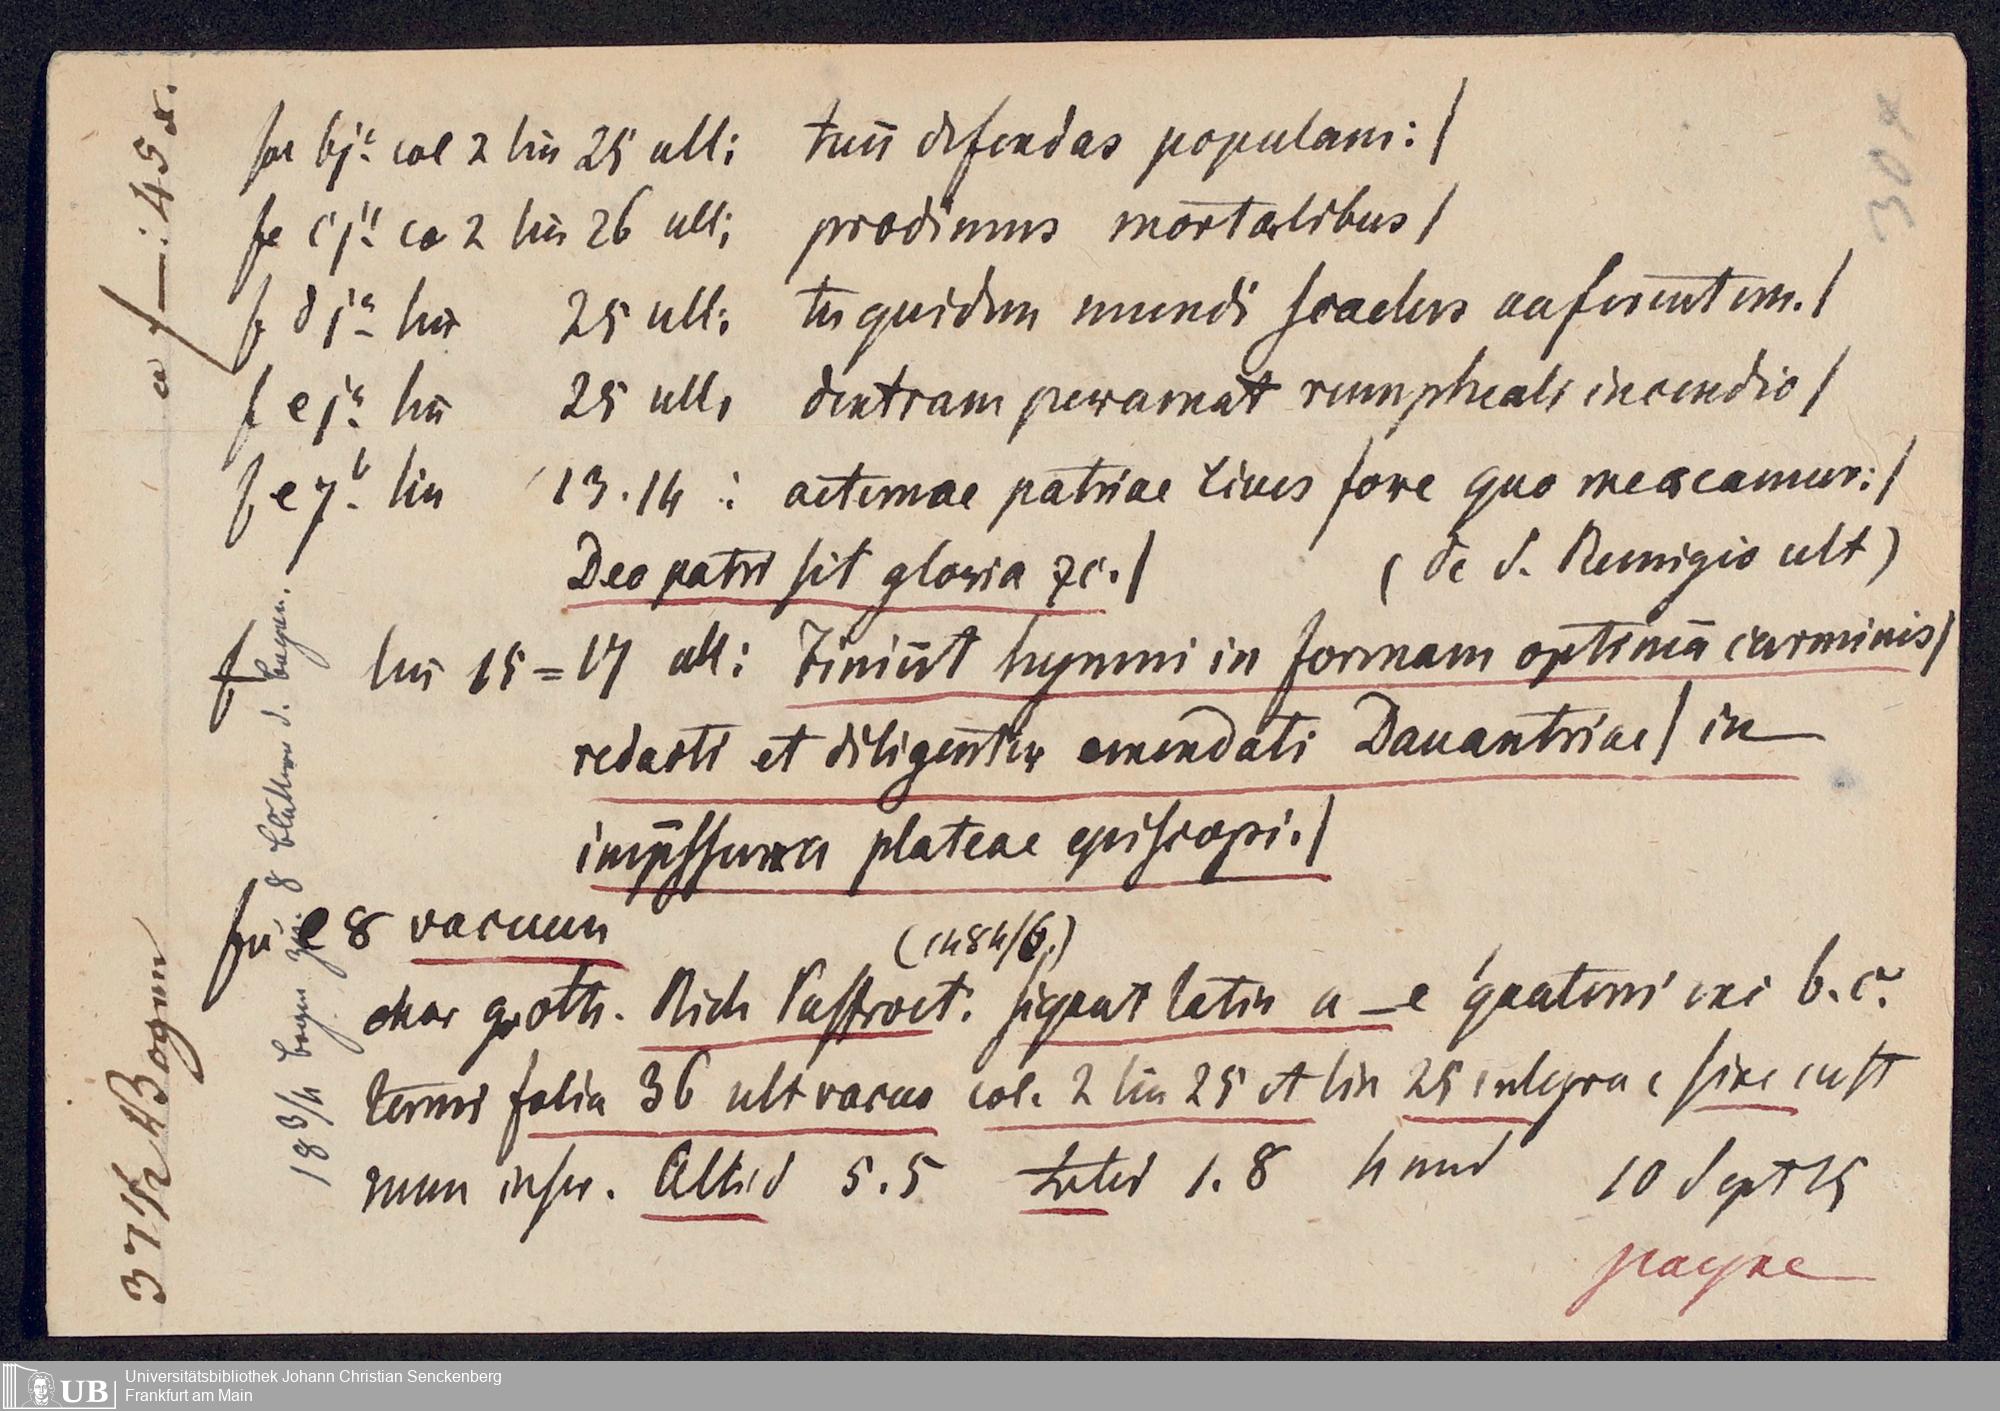 fol bjª col 2 lin 25 ult: tuū defendas populum:/
fe cjª co 2 lin 26 ult: prodimus mortalibus/
f djª lin 25 ult: tuquidem mundi scaelus auferentem./
f ejª lin 25 ult, dextram peramat rumpheali incendio/
f e 7b lin 13.14 : aeternae patriae Ciues fore quo mereamur:/
Deo patri sit gloria ɀc./ (de S. Remigio ult)
f lin 15=17 ult: Finiūt hymni in formam optimā carminis/
redacti et diligenter emendati Dauantriae/ in
imp̄ssura plateae episcopi./
fu e 8 vacuum
(1484/6.)
char goth. Rich Paffroet. signat latin a_e quaterni exc b.c.
terni folia 36 ult vacuo col. 2 lin 25 et lin 25 integra c sine cust
num inser. Altid 5.5 Latid 1.8 h und 10 Sept 15
payne
37 1/2 Bogen
a f — : 45 x.
18 3/4 bogen zu 8 blättern d. bogen.
304
Universitätsbibliothek Johann Christian Senckenberg
Frankfurt am Main
UB